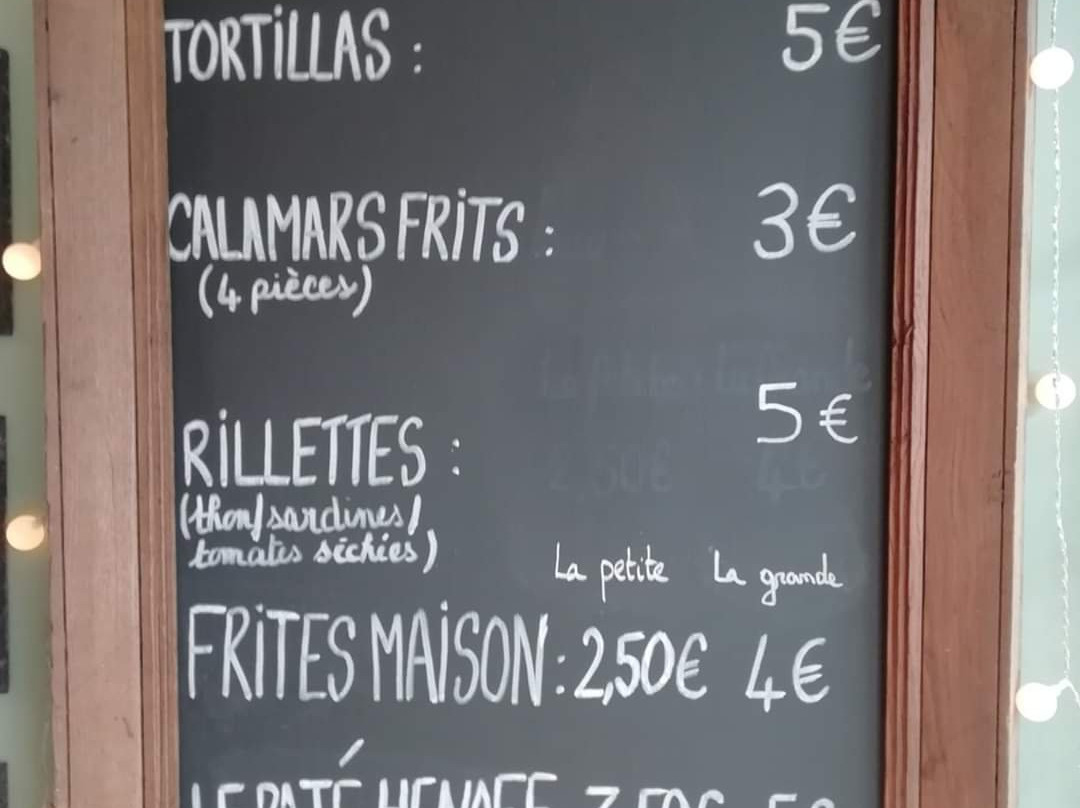 TORTILLAS : 5€
CALAMARS FRITS : 3€
(4 pièces)
RILLETTES : 5€
(thon/sardines/
tomates séchées)
La petite La grande
FRITES MAISON : 2,50€ 4€
LE PATÉ HENAFF